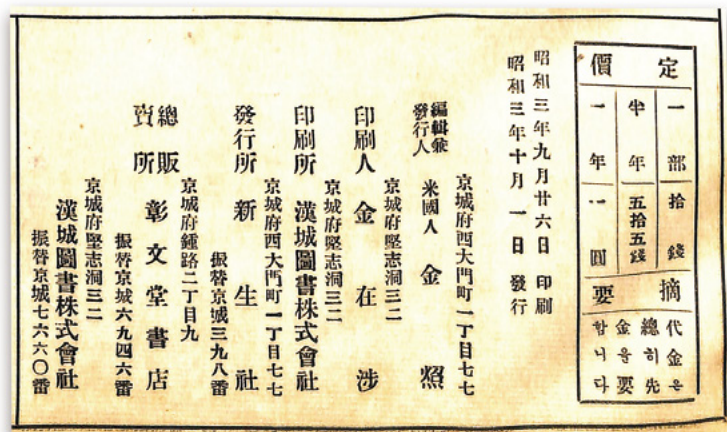 定價
一部 拾錢
半年 五拾五錢
一年 一圓
摘要
代金은
總히先
金을要
합니다
昭和三年九月廿六日 印刷
昭和三年十月一日 發行
京城府西大門町一丁目七七
編輯兼發行人 米國人 金
京城府堅志洞三二
印刷人 金在涉
京城府堅志洞三二
印刷所 漢城圖書株式會社
京城府西大門町一丁目七七
發行所 新生社
振替京城三九八番
京城府鍾路二丁目九
總販賣所 彰文堂書店
振替京城六九四六番
京城府堅志洞三二
漢城圖書株式會社
振替京城七六六〇番